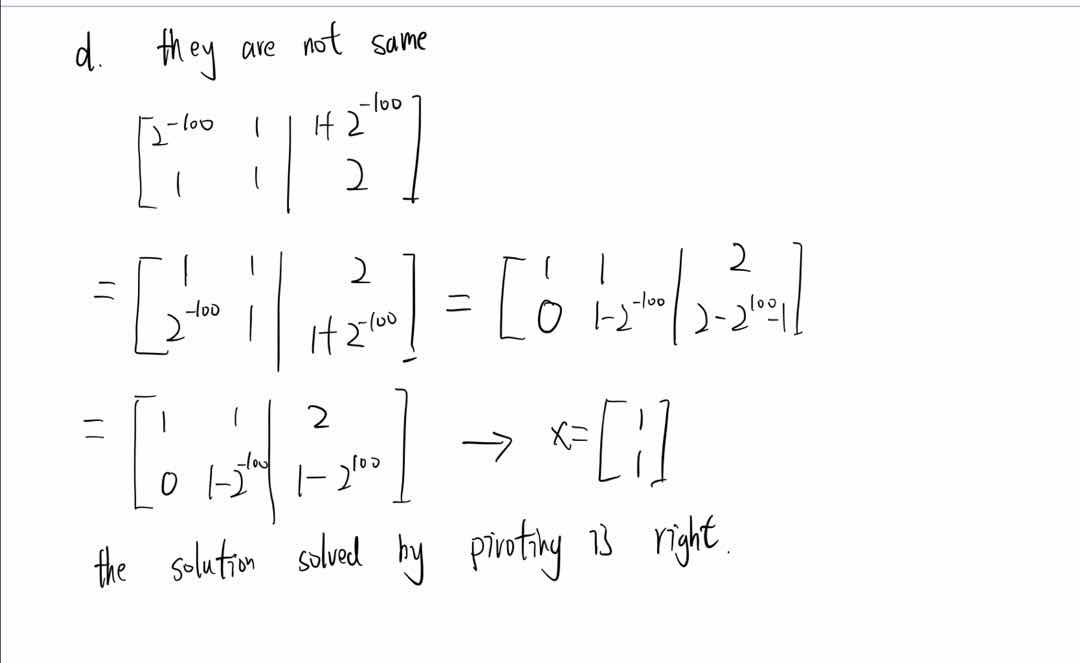 d. they are not same
[2^{-100} 1 | 1+2^{-100}]
[1 1 | 2]
= [1 1 | 2] = [1 1 | 2]
[2^{-100} 1 | 1+2^{-100}] [0 1-2^{-100} | 2-2^{100}-1]
= [1 1 | 2] → x= [1]
[0 1-2^{-100} | 1-2^{100}] [1]
the solution solved by pivoting is right.